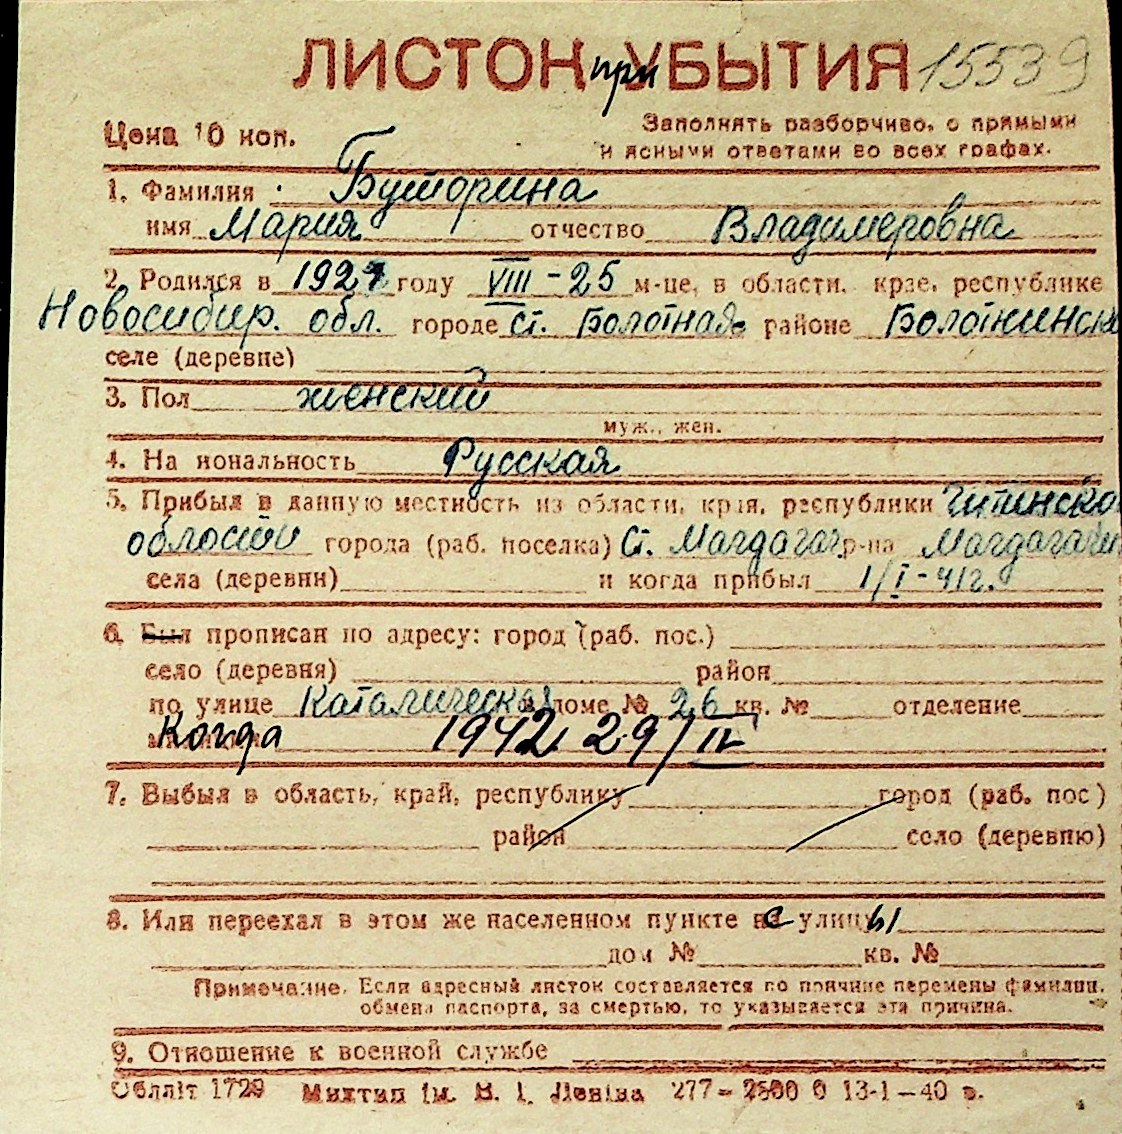 ЛИСТОК при УБЫТИЯ 15539
Цена 10 коп.
Заполнять разборчиво, с прямыми
и ясными ответами во всех графах.
1. Фамилия Буторина
имя Мария отчество Владимеровна
2. Родился в 1921 году VIII-25 м-це, в области, крае, республике
Новосибир. обл. городе ст. Болотная районе Болотнинск
селе (деревне)
3. Пол женский
муж., жен.
4. Национальность Русская
5. Прибыл в данную местность из области, края, республики Читинско
области города (раб. поселка) ст. Магдагач р-на Магдагачи
села (деревни) и когда прибыл 1/I-41г.
6. Был прописан по адресу: город (раб. пос.)
село (деревня) район
по улице Каталическая доме № 26 кв. № отделение
Когда 1942 29/IV
7. Выбыл в область, край, республику город (раб. пос)
район село (деревню)
8. Или переехал в этом же населенном пункте с улицы
дом № кв. №
Примечание. Если адресный листок составляется по причине перемены фамилии,
обмена паспорта, за смертью, то указывается эта причина.
9. Отношение к военной службе
Обліт 1729 Миктип ім. В. І. Леніна 277-2500 0 13-1-40 в.